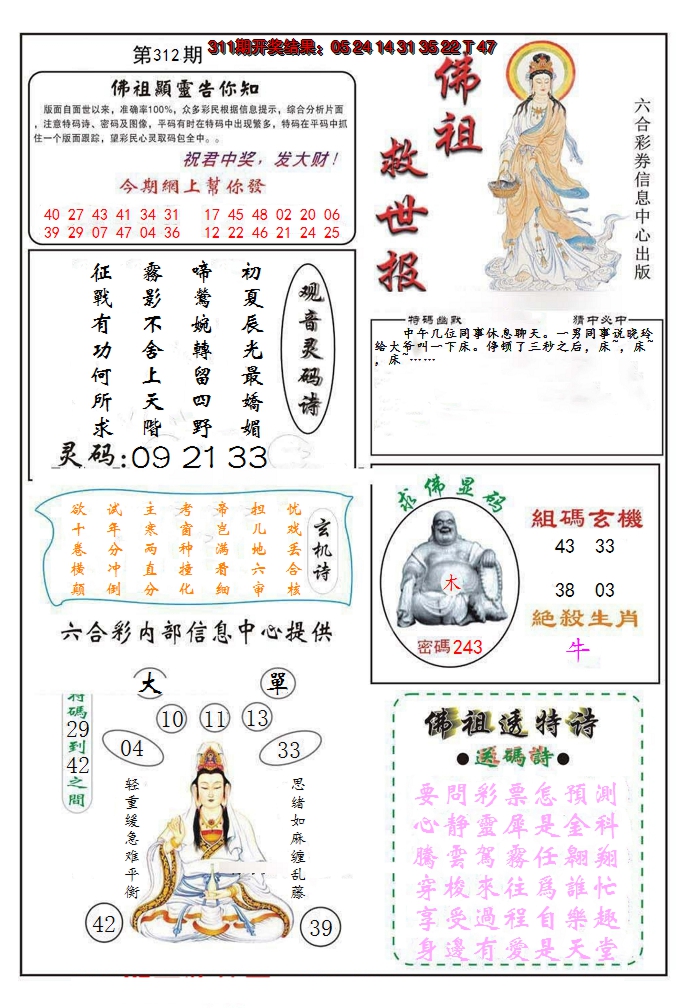 第312期
311期开奖结果：05 24 14 31 35 22 T 47
佛祖顯靈告你知
版面自面世以来，准确率100%，众多彩民根据信息提示，综合分析片面
，注意特码诗、密码及图像，平码有时在特码中出现繁多，特码在平码中抓
住一个版面跟踪，望彩民心灵取码包全中。。
祝君中奖，发大财！
今期網上幫你發
40 27 43 41 34 31 17 45 48 02 20 06
39 29 07 47 04 36 12 22 46 21 24 25
佛祖
救世报
六合彩券信息中心出版
观音灵码诗
初夏辰光最嬌媚
啼鶯婉轉留四野
霧影不舍上天階
征戰有功何所求
灵码:09 21 33
特碼幽默 猜中必中
中午几位同事休息聊天。一男同事说晓玲
给大爷叫一下床。停顿了三秒之后，床~，床~
，床~……
玄机诗
忧戏丢合核
担儿地六审
帝岂满看细
考窗种撞化
主寒两直分
试年分冲倒
欲十卷横颠
六合彩内部信息中心提供
求佛显码
木
密碼243
組碼玄機
43 33
38 03
絕殺生肖
牛
大 單
特碼29到42之間
10 11 13
04 33
轻重缓急难平衡
思绪如麻缠乱藤
42 39
佛祖透特诗
●送碼詩●
要問彩票怎預測
心静靈犀是金科
騰雲駕霧任翱翔
穿梭來往爲誰忙
享受過程自樂趣
身邊有愛是天堂